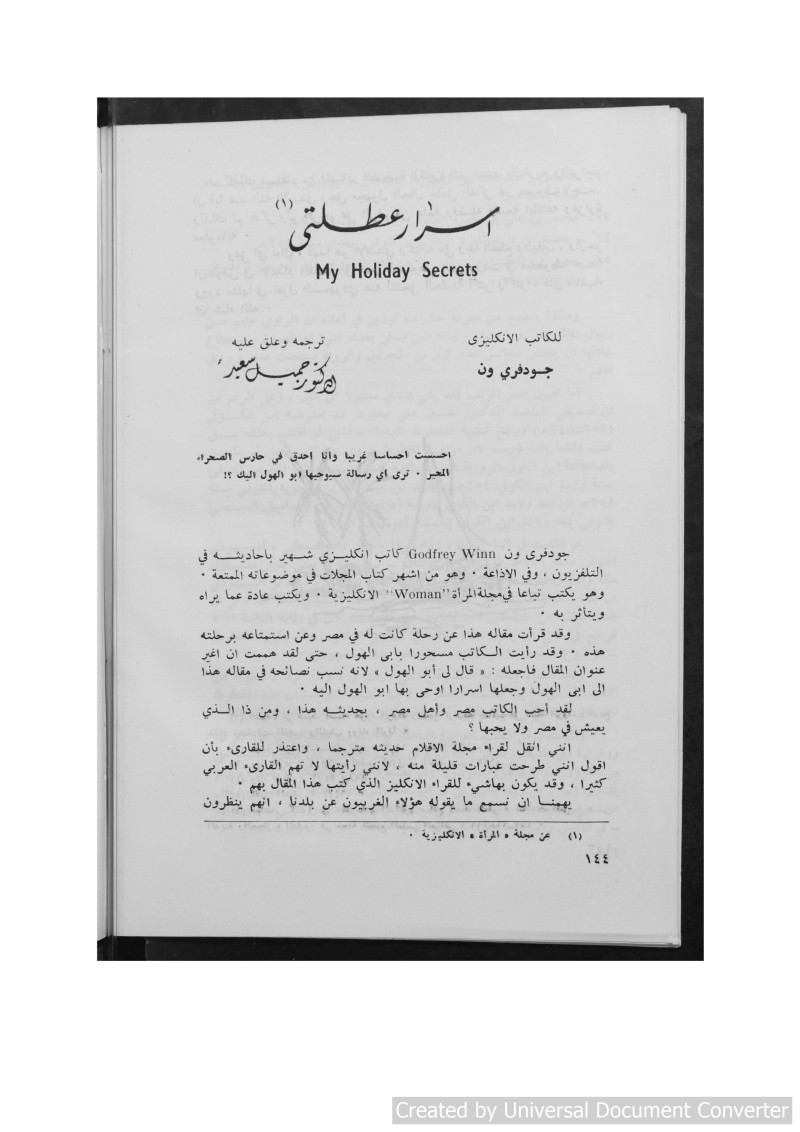 اسرار عطلتي (١)
My Holiday Secrets
للكاتب الانكليزى
جـودفري ون
ترجمه وعلق عليه
الدكتور جميل سعيد
احسست احساسا غريبا وانا احدق في حارس الصحراء
المحير · ترى اي رسالة سيوحيها ابو الهول اليك ؟!
جودفرى ون Godfrey Winn كاتب انكليـزي شـهير باحاديثـــه في
التلفزيون ، وفي الاذاعة · وهو من اشهر كتاب المجلات في موضوعاته الممتعة ·
وهو يكتب تباعا في مجلة المرأة "Woman" الانكليزية · ويكتب عادة عما يراه
ويتأثر به ·
وقد قرأت مقاله هذا عن رحلة كانت له في مصر وعن استمتاعه برحلته
هذه · وقد رأيت الـكاتب مسحورا بابى الهول ، حتى لقد هممت ان اغير
عنوان المقال فاجعله : « قال لى أبو الهول » لانه نسب نصائحه في مقاله هذا
الى ابى الهول وجعلها اسرارا اوحى بها ابو الهول اليه ·
لقد أحب الكاتب مصر وأهل مصر ، بحديثـه هذا ، ومن ذا الـذي
يعيش في مصر ولا يحبها ؟
انني انقل لقراء مجلة الاقلام حديثه مترجما ، واعتذر للقارىء بأن
اقول انني طرحت عبارات قليلة منه ، لانني رأيتها لا تهم القارىء العربي
كثيرا ، وقد يكون بهاشيء للقراء الانكليز الذي كتب هذا المقال بهم ·
يهمنـا ان نسمع ما يقوله هؤلاء الغربيون عن بلدنا ، انهم ينظرون
(١) عن مجلة « المرأة » الانكليزية ·
١٤٤
Created by Universal Document Converter